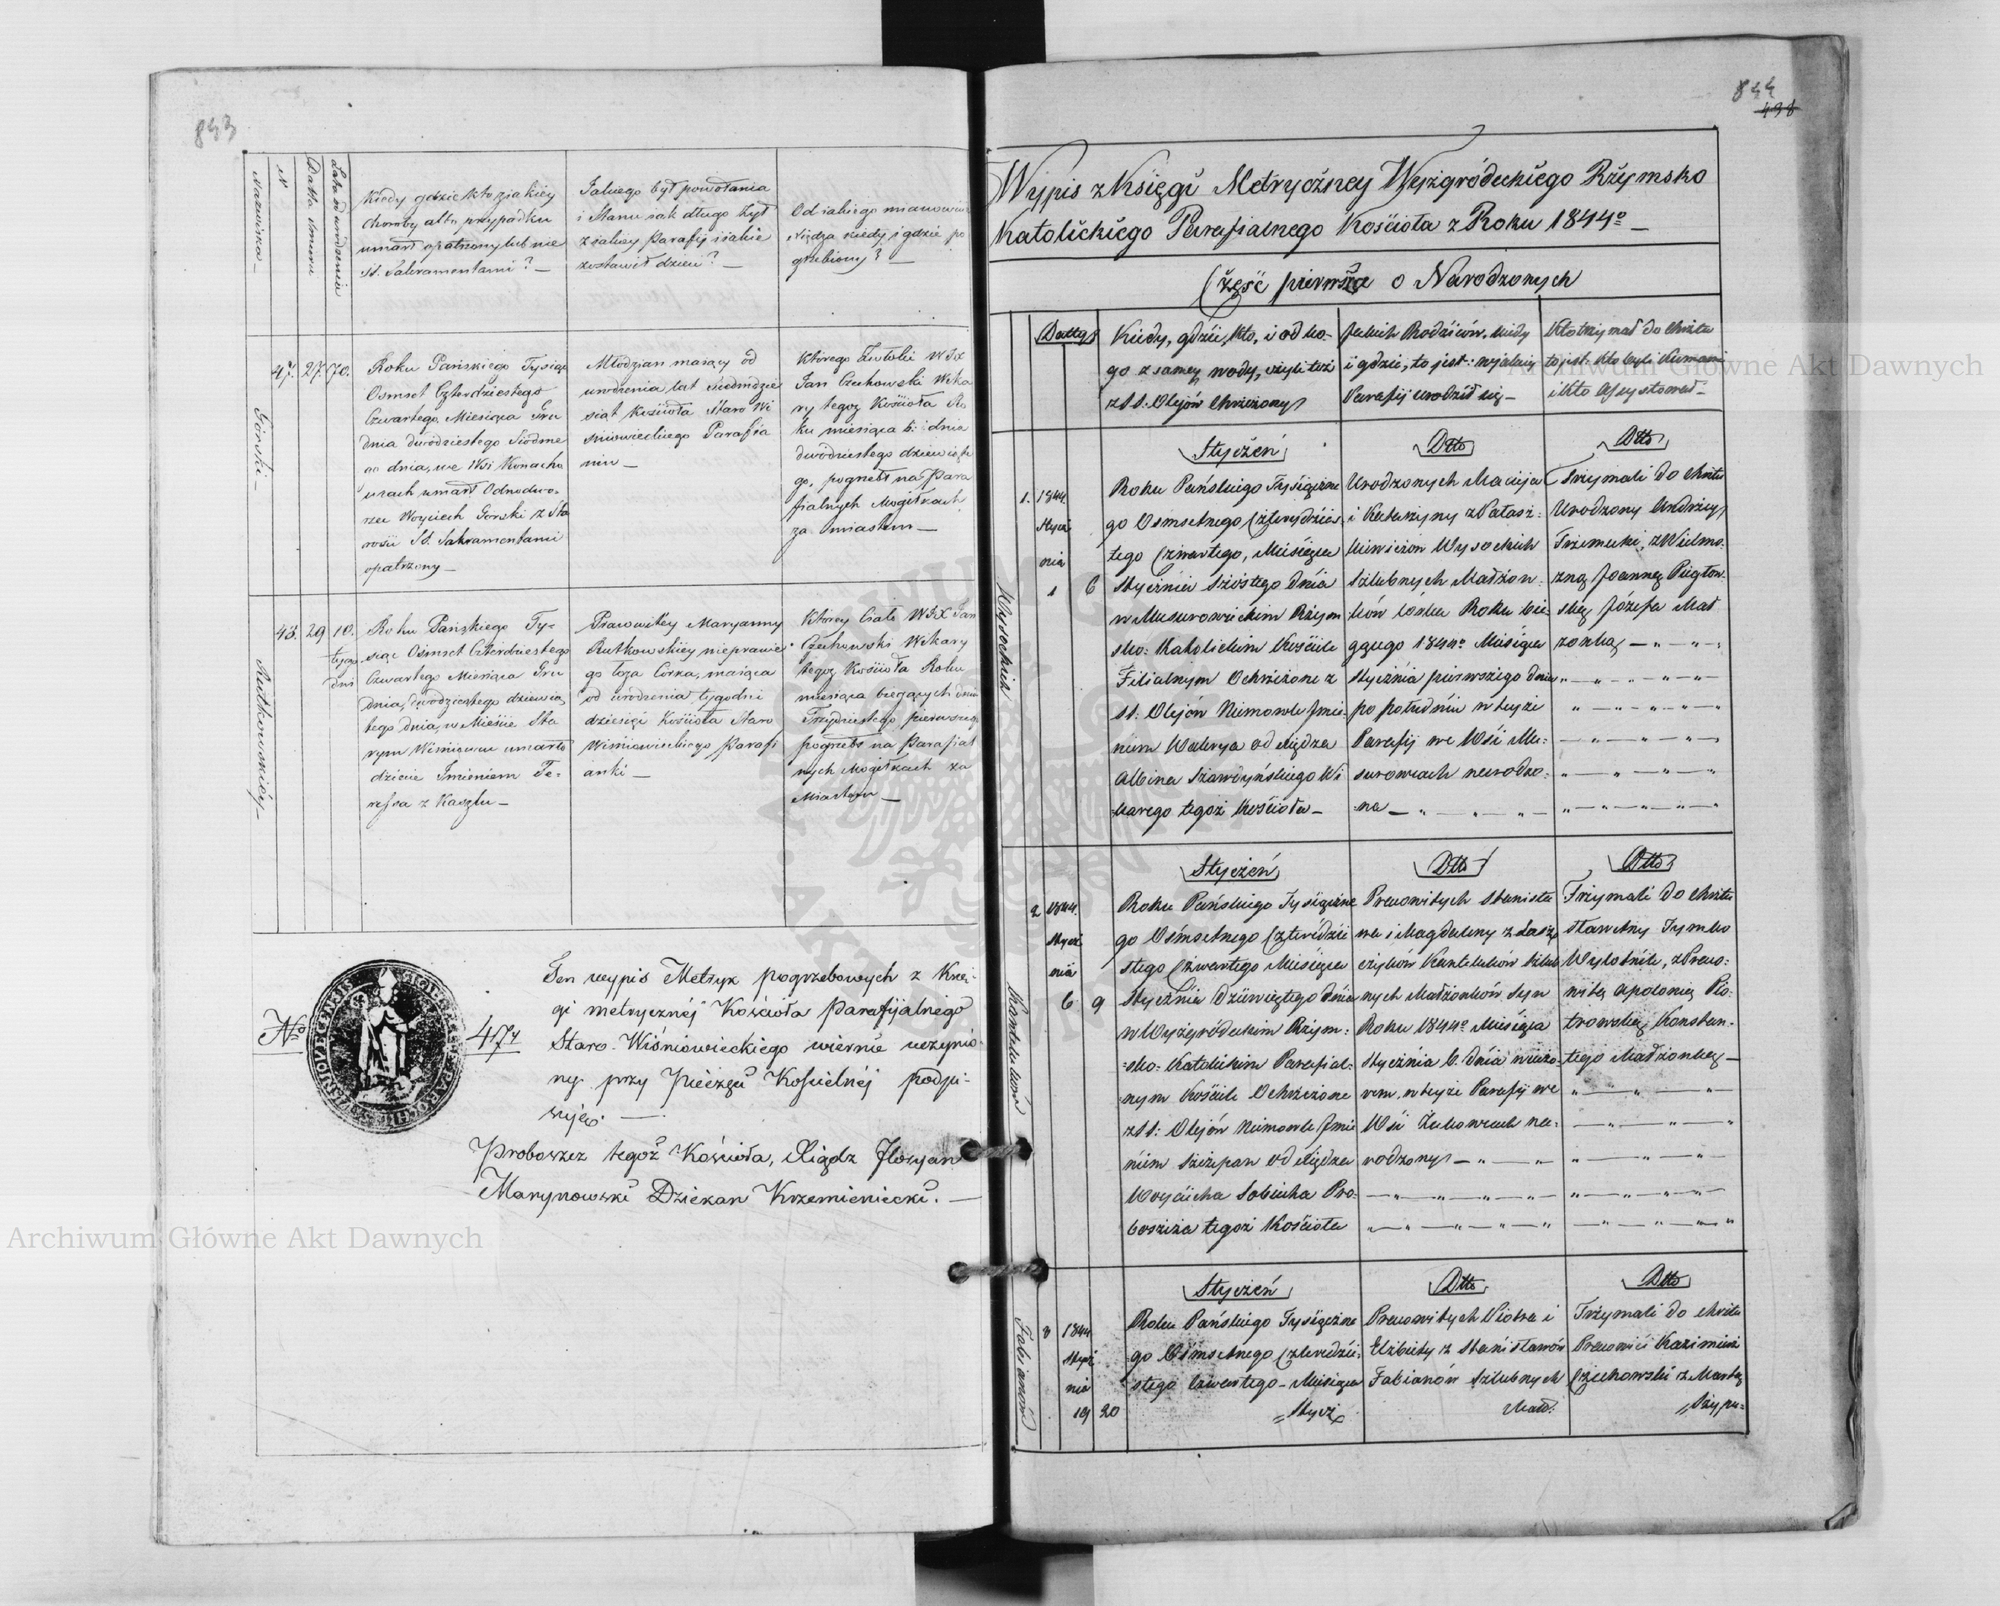 843
Nazwiska
N
Datta smierci
Lata od urodzenia
Kiedy gdzie kto z jakiéy
choroby albo przypadku
umarł opatrzony lub nie
St. Sakramentami? —
Jakiego był powołania
i stanu jak długo żył
z jakiey Parafij i jakie
zostawił dzieci? —
Od jakiego mianowicie
Xiędza kiedy i gdzie po
grzebiony? —
47.
27.
70.
Górski
Roku Pańskiego Tysiąc
Osmset Czterdziestego
Czwartego Miesiąca Gru
dnia dwódziestego Siódme
go dnia, we Wsi Konacho
wcach umarł Odnodwo-
rzec Woyciech Gorski z Sta
rosci St. Sakramentami
opatrzony —
Młodzian maiący od
urodzenia lat siedmdzie
siąt Kościoła Staro Wi
śniowieckiego Parafia
nin —
Którego Zwłoki W JX
Jan Czechowski Wika
ry tegoż Kościoła Ro
ku miesiąca tt: dnia
dwódziestego dziewiąte
go, pogrzebł na Para
fialnych Mogiłkach
za miastem —
48.
29
10.
tygo
dni
Rutkowskiéy
Roku Pańskiego Ty-
siąc Osmset Czterdziestego
Czwartego Miesiąca Gru
dnia, dwódziestego dziewią
tego dnia, w Mieście Sta
rym Wiśniowcu umarło
dziecie Imieniem Te-
ressa z Kaszlu —
Pracowitey Maryanny
Rutkowskiéy nieprawe
go łoża Córka, maiąca
od urodzenia tygodni
dziesięć Kościoła Staro
Wiśniowieckiego Parafi
anki —
Którey Ciało W JX Jan
Czechowski Wikary
tegoż Kościoła Roku
miesiąca bieżących dnia
Trzydziestego pierwszego
pogrzebł na Parafial
nych Mogiłkach za
Miastem —
No
477
Ten wypis Metryk pogrzebowych z Księ-
gi metrycznéj Kościoła parafijalnego
Staro-Wiśniowieckiego wiernie uczynio-
ny przy Pieczęci Kościelnéj podpi-
suję. —
Proboszcz tegoż Kościoła, Xiądz Floryan
Marynowski Dziekan Krzemieniecki. —
844
498
Wypis z Księgi Metryczney Wyżgródeckiego Rzymsko
Katolickiego Parafialnego Kościoła z Roku 1844o —
Część pierwsza o Narodzonych
Datty
Kiedy, gdzie, kto, i od ko-
go z samey wody, czyli też
z SS: Olejów Chrzczony
Jakich Rodziców, kiedy
i gdzie, to jest: w jakiey
Parafij urodził się —
Kto trzymał do Chrztu
to jest: kto byli Kumami
i kto assystował —
Wysockich
1.
1844.
Stycz
nia
1
6
Styczeń
Roku Pańskiego Tysiączne
go Osmsetnego Czterydzies-
tego Czwartego, Miesiąca
Stycznia szóstego dnia
w Musurowieckim Rzym
sko: Katolickim Kościele
Filialnym Ochrzczona z
SS: Olejów Niemowle Imie-
niem Walerya od Xiędza
Albina Szawdyńskiego Wi
karego tegoż Kościoła —
Dtto
Urodzonych Macieja
i Katarzyny z Patasz-
kiewiczów Wysockich
Szlubnych Małżon-
ków córka Roku bie-
żącego 1844o Miesiąca
Stycznia pierwszego dnia
po południu w teyże
Parafij we Wsi Mu-
surowcach narodzo-
na —
Dtto
Trzymali do Chrztu
Urodzony Andrzey
Trzemecki, z Wielmo-
żną Joanną Piegłow-
ską Józefa Mał
żonką —
Kantelików
2
1844.
Stycz
nia
6
9
Styczeń
Roku Pańskiego Tysiączne
go Osmsetnego Czterdzie
stego Czwartego Miesiąca
Stycznia dziewiątego dnia
w Wyżgródeckim Rzym-
sko: Katolickim Parafial-
nym Kościele Ochrzczone
z SS: Olejów Niemowle Imie
niem Szczepan od Xiędza
Woyciecha Sobiecha Pro-
boszcza tegoż Kościoła
Dtto
Pracowitych Stanisła
wa i Magdaleny z Łasz
czyków Kantelików szlub
nych Małżonków Syn
Roku 1844o Miesiąca
Stycznia 6. dnia wieczo
rem, w teyże Parafij we
Wsi Żukowcach na-
rodzony —
Dtto
Trzymali do Chrztu
Sławetny Tymko
Wylotnik, z Praco-
witą Apolonią Pio-
trowską Konstan-
tego Małżonką —
Fabianów
3
1844
Stycz
nia
19
20
Styczeń
Roku Pańskiego Tysiączne
go Osmsetnego Czterdzie-
stego Czwartego — Miesiąca
„Stycz
Dtto
Pracowitych Piotra i
Elżbiety z Stanisławów
Fabianów Szlubnych
Małż:
Dtto
Trzymali do Chrztu
Pracowici Kazimierz
Czechowski z Martą
„Szypu-
Archiwum Główne Akt Dawnych
Archiwum Główne Akt Dawnych